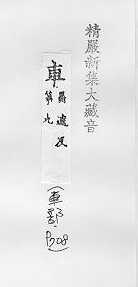 精嚴新集大藏音
車
昌遮反
第九
(車部 P.208)